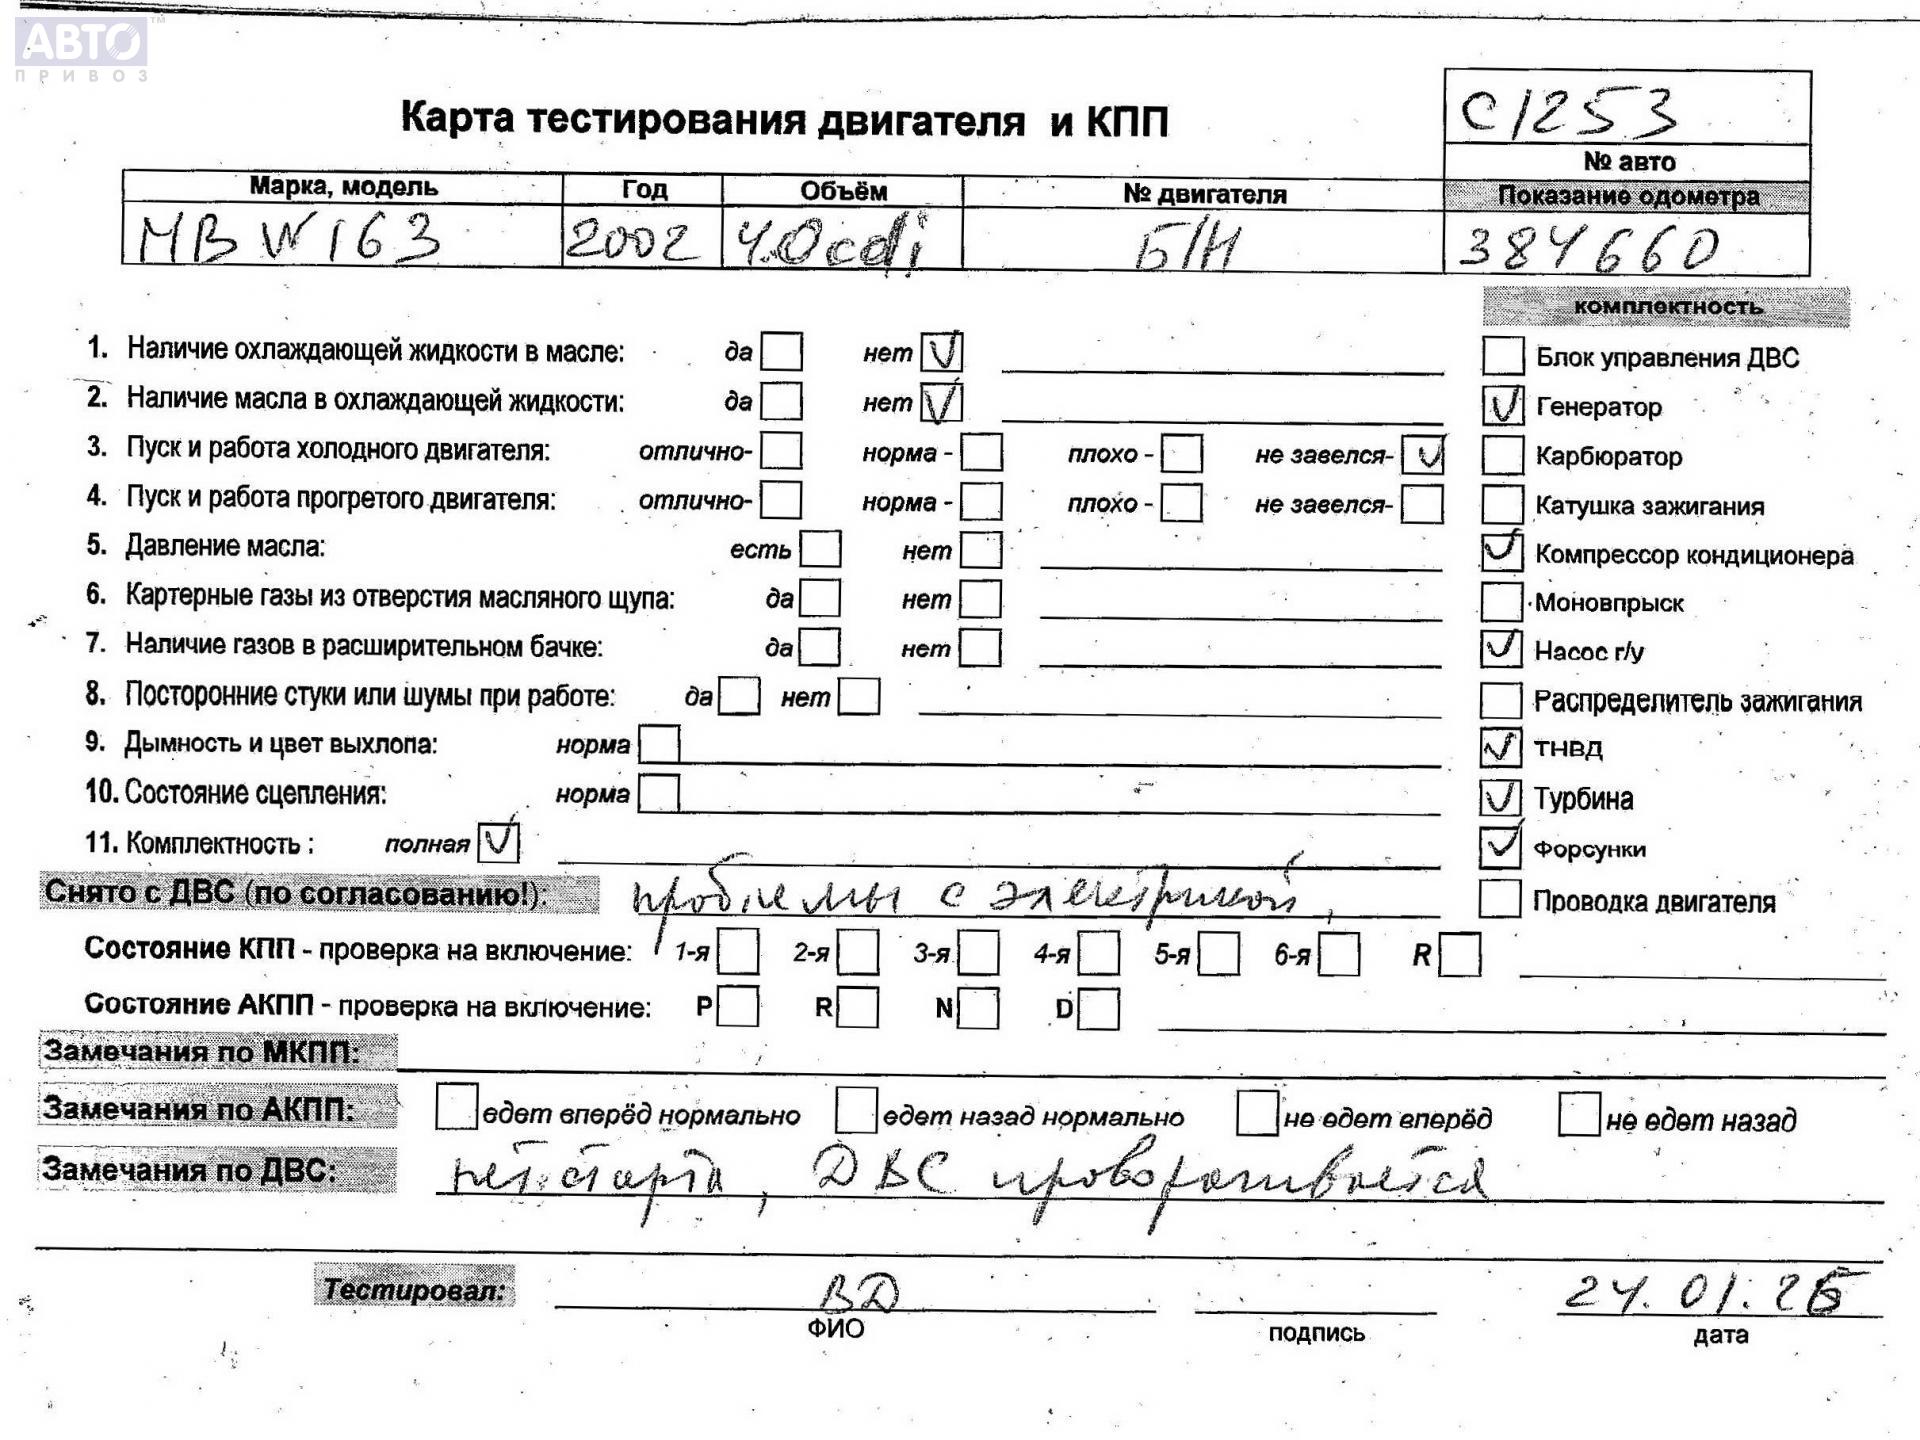 АВТО™
ПРИВОЗ
С1253
Карта тестирования двигателя и КПП
№ авто
Марка, модель Год Объём № двигателя Показание одометра
MB W163 2002 4.0cdi Б/Н 384660
комплектность
1. Наличие охлаждающей жидкости в масле: да нет
Блок управления ДВС
2. Наличие масла в охлаждающей жидкости: да нет
Генератор
3. Пуск и работа холодного двигателя: отлично- норма - плохо - не завелся-
Карбюратор
4. Пуск и работа прогретого двигателя: отлично- норма - плохо - не завелся-
Катушка зажигания
5. Давление масла: есть нет
Компрессор кондиционера
6. Картерные газы из отверстия масляного щупа: да нет
Моновпрыск
7. Наличие газов в расширительном бачке: да нет
Насос г/у
8. Посторонние стуки или шумы при работе: да нет
Распределитель зажигания
9. Дымность и цвет выхлопа: норма
ТНВД
10. Состояние сцепления: норма
Турбина
11. Комплектность : полная
Форсунки
Снято с ДВС (по согласованию!): проблемы с электрикой,
Проводка двигателя
Состояние КПП - проверка на включение: 1-я 2-я 3-я 4-я 5-я 6-я R
Состояние АКПП - проверка на включение: P R N D
Замечания по МКПП:
Замечания по АКПП: едет вперёд нормально едет назад нормально не едет вперёд не едет назад
Замечания по ДВС: нет старта, ДВС проворачивается
Тестировал: ВД 24.01.
ФИО подпись дата